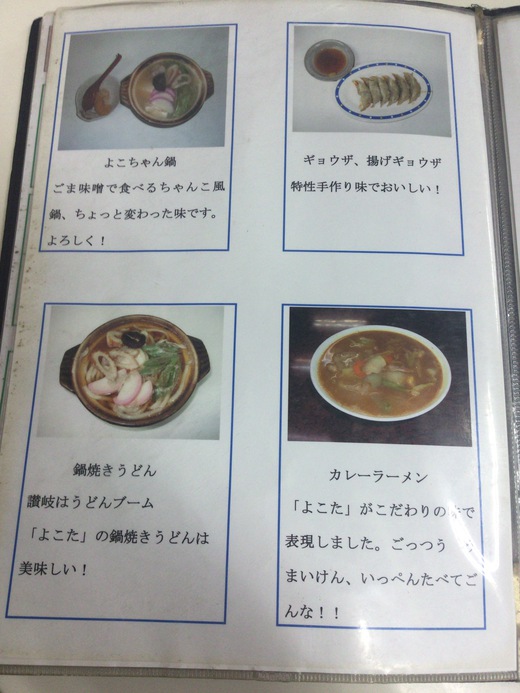 よこちゃん鍋
ごま味噌で食べるちゃんこ風
鍋、ちょっと変わった味です。
よろしく！
ギョウザ、揚げギョウザ
特性手作り味でおいしい！
鍋焼きうどん
讃岐はうどんブーム
「よこた」の鍋焼きうどんは
美味しい！
カレーラーメン
「よこた」がこだわりの味で
表現しました。ごっつう　う
まいけん、いっぺんたべてご
んな！！